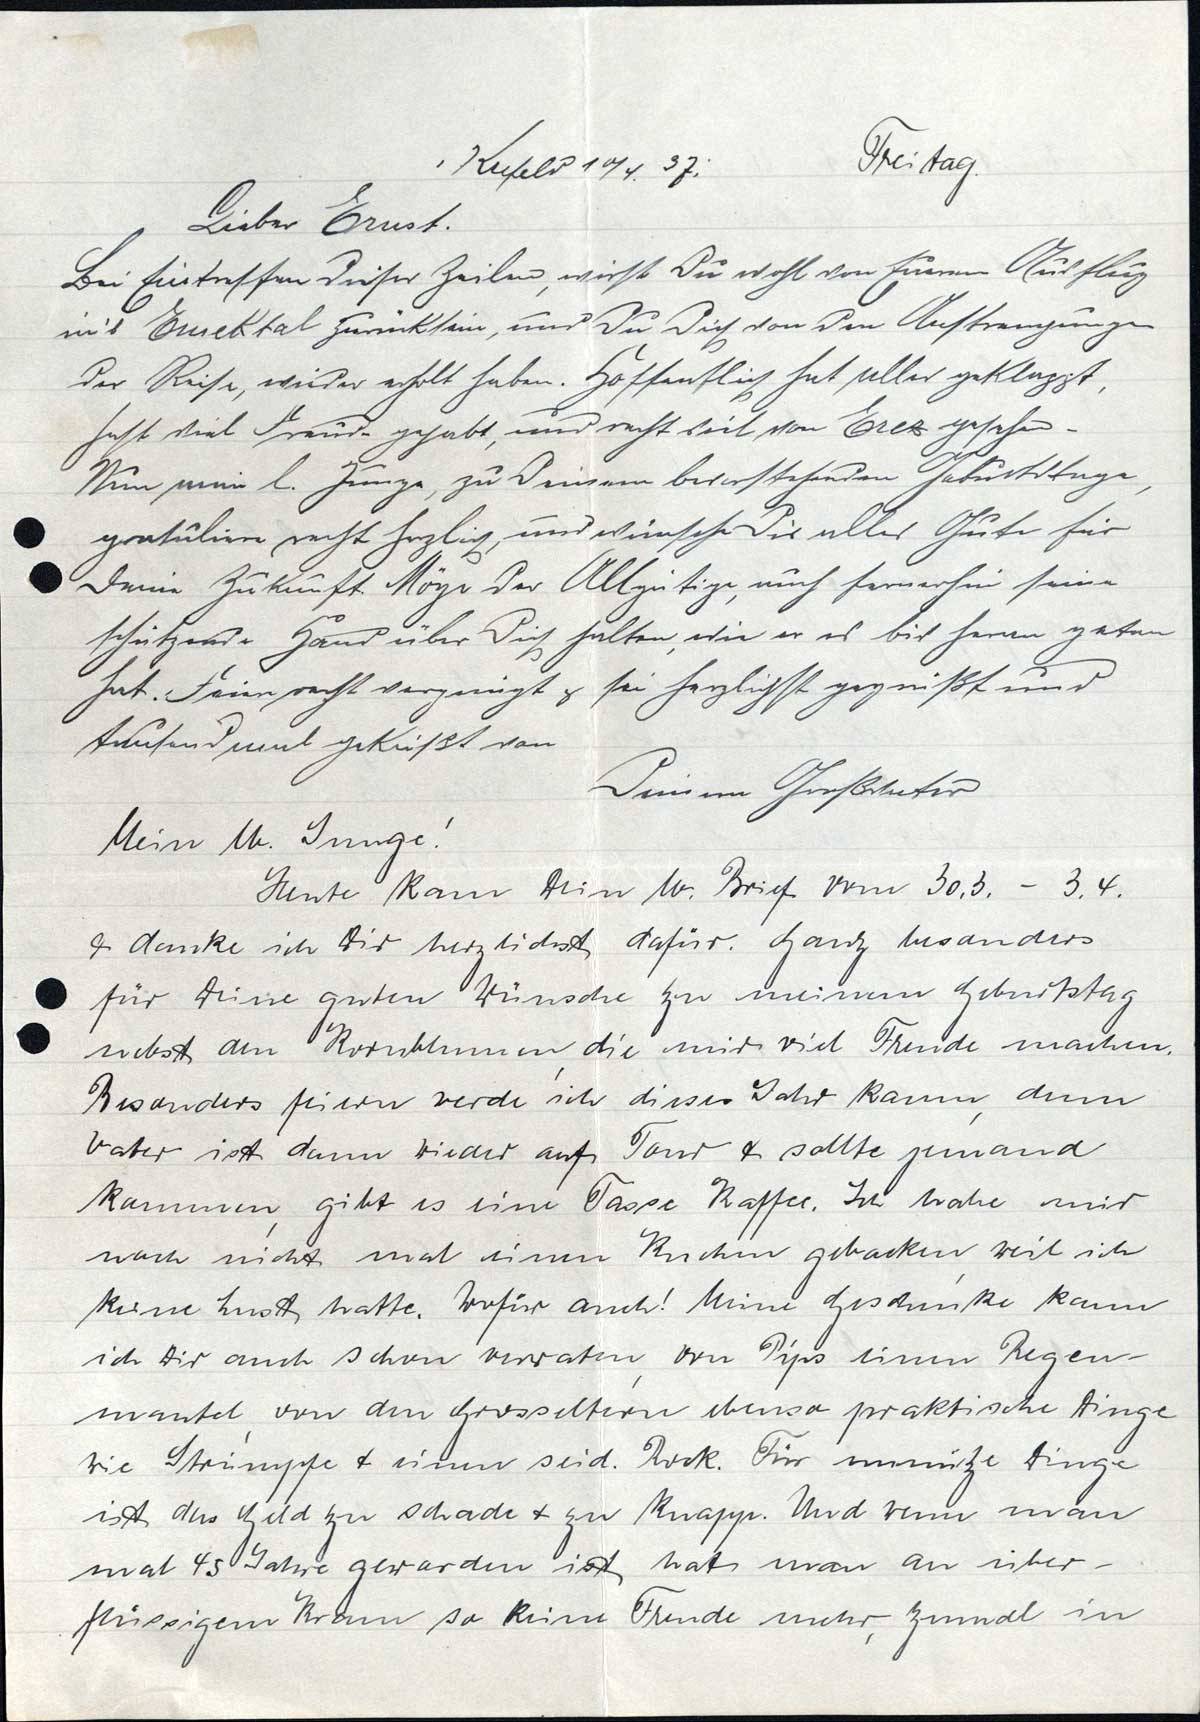 Krefeld 10/4. 37. Freitag.
Lieber Ernst.
Bei Eintreffen dieser Zeilen, wirst Du wohl von Eurem Ausflug
in's Emektal zurücksein, und Du Dich von den Anstrengungen
der Reise, wieder erholt haben. Hoffentlich hat alles geklappt,
hast viel Freude gehabt, und recht viel von Erez gesehen.
Nun mein l. Junge, zu Deinem bevorstehenden Geburtstage,
gratuliere recht herzlich, und wünsche Dir alles Gute für
Deine Zukunft. Möge der Allgütige, auch fernerhin seine
schützende Hand über Dich halten, wie er es bis heran getan
hat. Feiere recht vergnügt & sei herzlichst gegrüßt und
tausendmal geküßt von
Deinem Großvater
Mein lb. Junge!
Heute kam Dein lb. Brief vom 30.3. - 3.4.
& danke ich Dir herzlichst dafür. Ganz besonders
für Deine guten Wünsche zu meinem Geburtstag
nebst den Kornblumen, die mir viel Freude machen.
Besonders feiern werde ich dieses Jahr kaum, denn
Vater ist dann wieder auf Tour & sollte jemand
kommen, gibt es eine Tasse Kaffee. Ich habe mir
noch nicht mal einen Kuchen gebacken, weil ich
keine Lust hatte. Wofür auch! Meine Geschenke kann
ich Dir auch schon verraten, von Pips einen Regen-
mantel, von den Grosseltern ebenso praktische Dinge
wie Strümpfe & einen seid. Rock. Für unnütze Dinge
ist das Geld zu schade & zu knapp. Und wenn man
mal 45 Jahre geworden ist, hat man an über-
flüssigem Kram so keine Freude mehr, zumal in